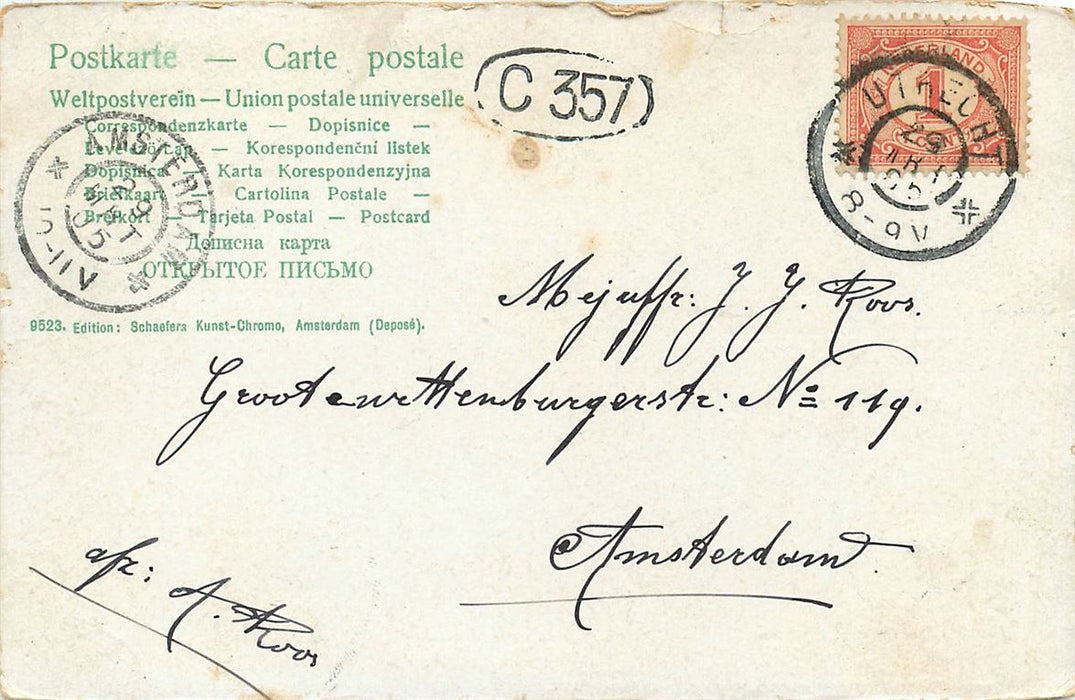 Postkarte — Carte postale
Weltpostverein — Union postale universelle
Correspondenzkarte — Dopisnice —
Levelező-Lap — Korespondenční listek
Dopisnica — Karta Korespondenzyjna
Briefkaart — Cartolina Postale —
Brefkort — Tarjeta Postal — Postcard
Дописна карта
ОТКРЫТОЕ ПИСЬМО
9523. Edition: Schaefers Kunst-Chromo, Amsterdam (Deposé).
C 357
AMSTERDAM
29
MRT
05
10-11V
NEDERLAND
1
CENT
UTRECHT
29
MRT
05
8-9V
Mejuffr: J. J. Roos.
Grootewittenburgerstr: No 119.
Amsterdam.
afz: A. Roos